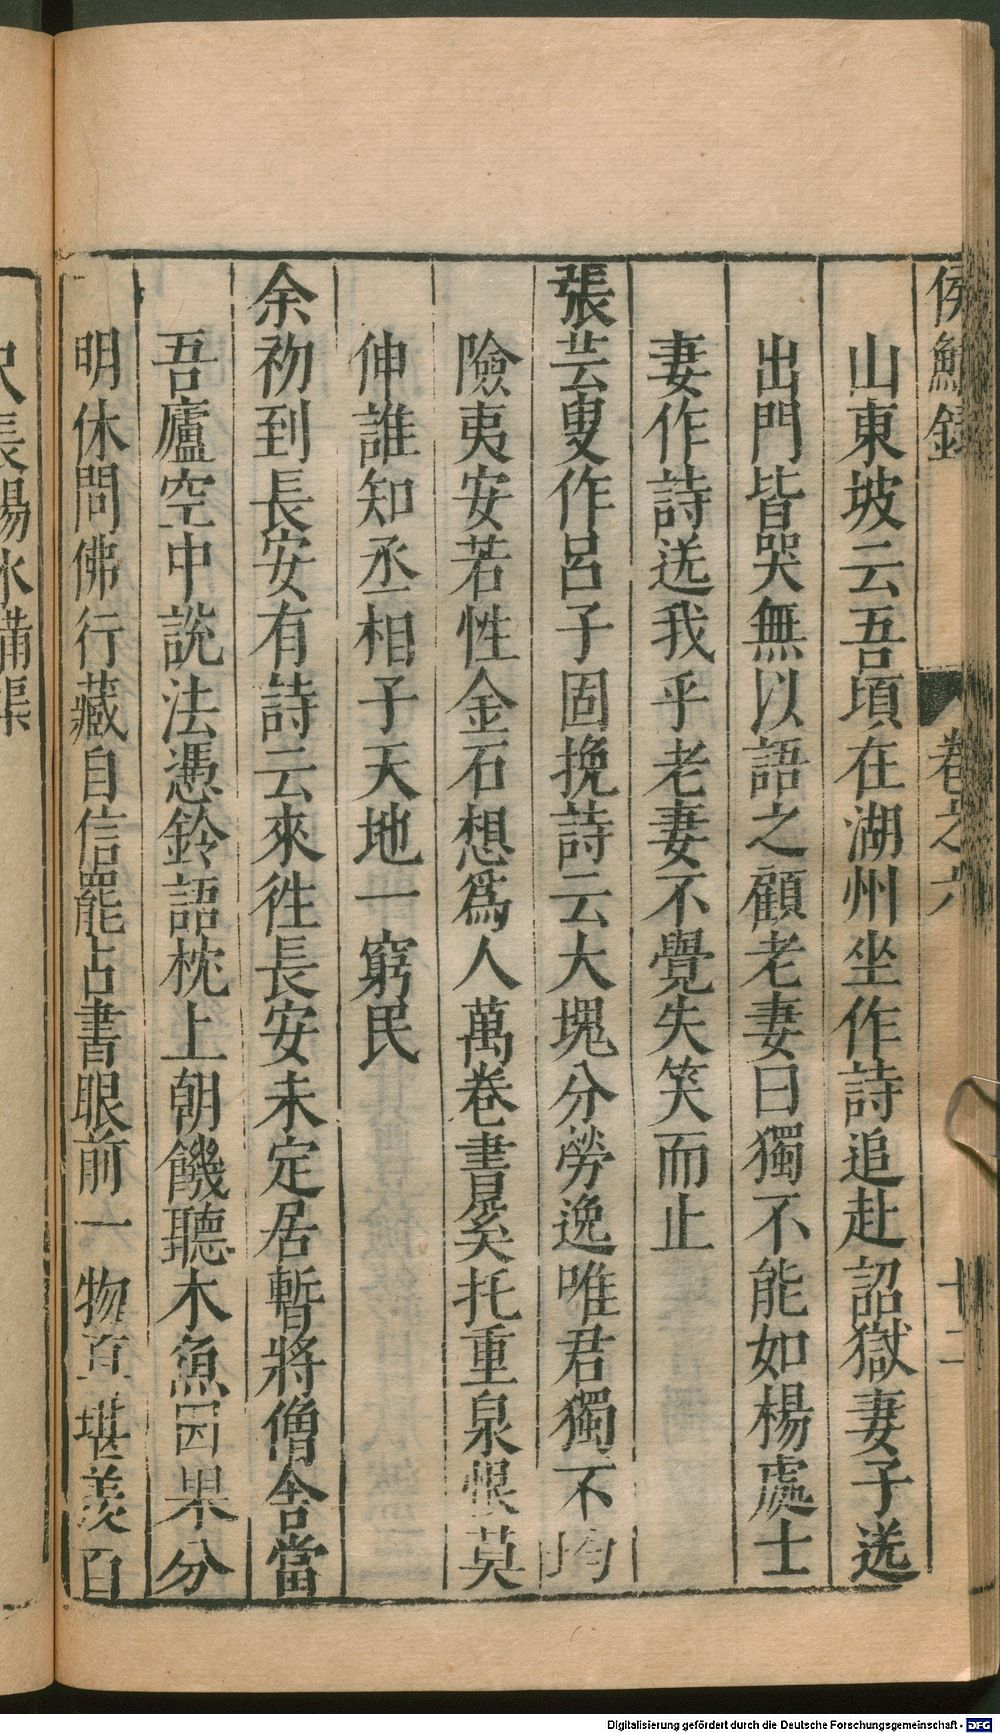 侯鯖錄 卷之六 十二
山東坡云吾頃在湖州坐作詩追赴詔獄妻子送
出門皆哭無以語之顧老妻曰獨不能如楊處士
妻作詩送我乎老妻不覺失笑而止
張芸叟作呂子固挽詩云大塊分勞逸唯君獨不均
險夷安若性金石想爲人萬卷書奚托重泉恨莫
伸誰知丞相子天地一窮民
余初到長安有詩云來徃長安未定居暫將僧舍當
吾廬空中說法憑鈴語枕上朝饑聽木魚因果分
明休問佛行藏自信罷占書眼前一物真堪羨百
尺長楊水滿渠
Digitalisierung gefördert durch die Deutsche Forschungsgemeinschaft - DFG